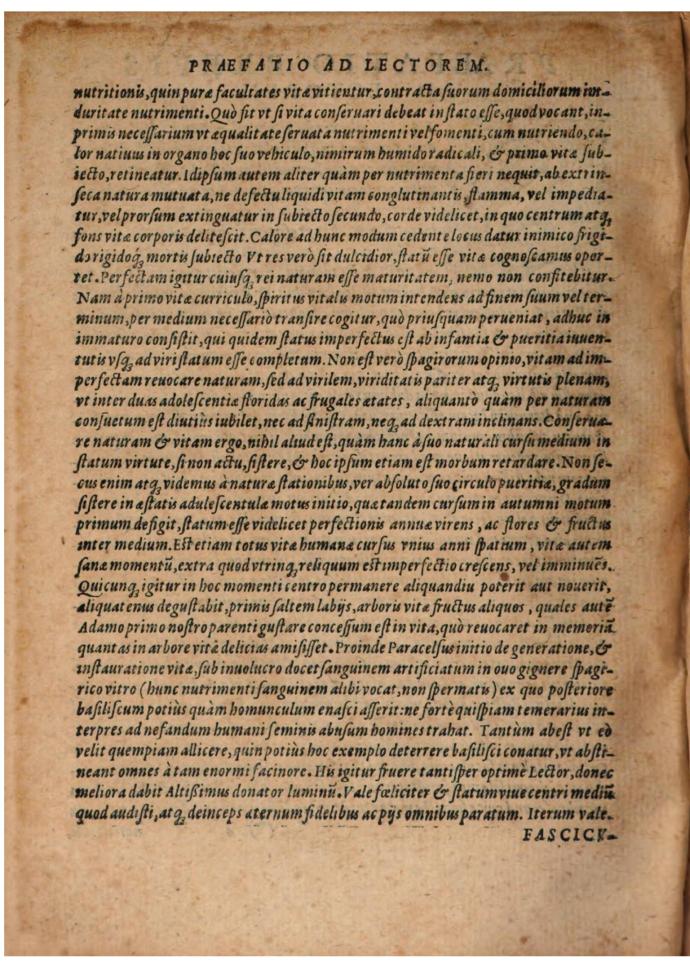 PRAEFATIO AD LECTOREM.
nutritionis, quin puræ facultates vitæ vitientur, contracta suorum domiciliorum in-
duritate nutrimenti. Quò fit vt si vita conseruari debeat in stato esse, quod vocant, in-
primis necessarium vt æqualitate seruata nutrimenti vel fomenti, cum nutriendo, ca-
lor natiuus in organo hoc suo vehiculo, nimirum humido radicali, & primo vitæ sub-
iecto, retineatur. Idipsum autem aliter quàm per nutrimenta fieri nequit, ab extrin-
seca natura mutuata, ne defectu liquidi vitam conglutinantis, flamma, vel impedia-
tur, vel prorsum extinguatur in subiecto secundo, corde videlicet, in quo centrum atq́;
fons vitæ corporis delitescit. Calore ad hunc modum cedente locus datur inimico frigi-
do rigidoq́; mortis subiecto Vt res verò sit dulcidior, statũ esse vitæ cognoscamus opor-
tet. Perfectam igitur cuiusq́; rei naturam esse maturitatem, nemo non confitebitur.
Nam à primo vitæ curriculo, spiritus vitalis motum intendens ad finem suum vel ter-
minum, per medium necessariò transire cogitur, quò priusquam perueniat, adhuc in
immaturo consistit, qui quidem status imperfectus est ab infantia & pueritia inuen-
tutis vsq́; ad viri statum esse completam. Non est verò spagirorum opinio, vitam ad im-
perfectam reuocare naturam, sed ad virilem, viriditatis pariter atq́; virtutis plenam,
vt inter duas adolescentiæ floridas ac frugales ætates, aliquanto quàm per naturam
consuetum est diutiùs iubilet, nec ad sinistram, neq́; ad dextram inclinans. Conserua-
re naturam & vitam ergo, nihil aliud est, quàm hanc à suo naturali cursu medium in
statum virtute, si non actu, sistere, & hoc ipsum etiam est morbum retardare. Non se-
cus enim atq́; videmus à naturæ stationibus, ver absoluto suo circulo pueritiæ, gradum
sistere in æstatis adulescentulæ motus initio, quæ tandem cursum in autumni motum
primum defigit, statum esse videlicet perfectionis annuæ virens, ac flores & fructus
inter medium. Est etiam totus vitæ humanæ cursus vnius anni spatium, vitæ autem
sanæ momentũ, extra quod vtrinq́; reliquum est imperfectio crescens, vel imminuẽs.
Quicunq́; igitur in hoc momenti centro permanere aliquandiu poterit aut nouerit,
aliquatenus degustabit, primis saltem labijs, arboris vitæ fructus aliquos, quales autẽ
Adamo primo nostro parenti gustare concessum est in vita, quò reuocaret in memoriã
quantas in arbore vitæ delicias amisisset. Proinde Paracelsus initio de generatione, &
instauratione vitæ, sub inuolucro docet sanguinem artificiatum in ouo gignere spagi-
rico vitro (hunc nutrimenti sanguinem alibi vocat, non spermatis) ex quo posteriore
basiliscum potiùs quàm homunculum enasci asserit: ne fortè quispiam temerarius in-
terpres ad nefandum humani seminis abusum homines trahat. Tantùm abest vt eò
velit quempiam allicere, quin potiùs hoc exemplo deterrere basilisci conatur, vt absti-
neant omnes à tam enormi facinore. His igitur fruere tantisper optimè Lector, donec
meliora dabit Altissimus donator luminũ. Vale fœliciter & statum viue centri mediũ
quod audisti, atq́; deinceps æternum fidelibus ac pijs omnibus paratum. Iterum vale.
FASCICV-